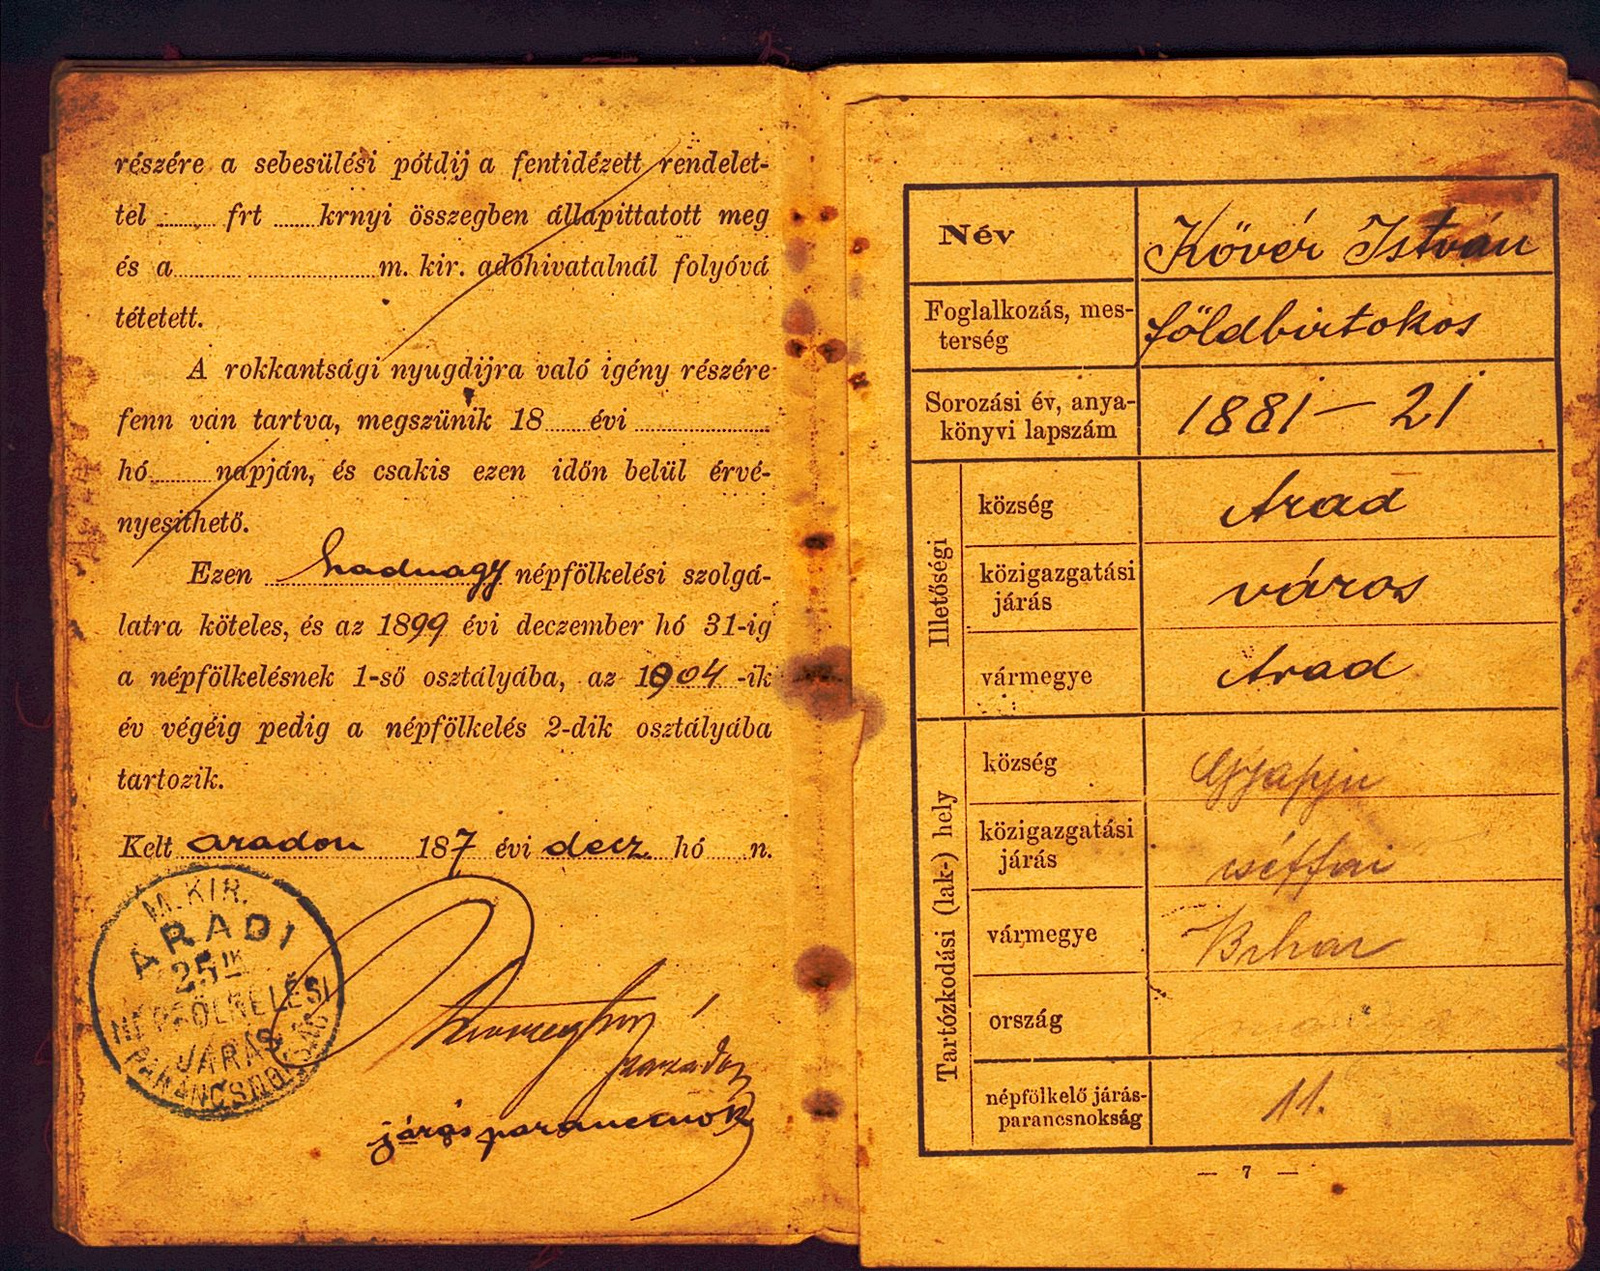 részére a sebesülési pótdij a fentidézett rendelet-
tel ........ frt ......krnyi összegben állapittatott meg
és a........ ....................m. kir. adóhivatalnál folyóvá
tétetett.
A rokkantsági nyugdijra való igény részére
fenn van tartva, megszünik 18......évi ..................
hó.........napján, és csakis ezen időn belül érvé-
nyesithető.
Ezen hadnagy népfölkelési szolgá-
latra köteles, és az 1899 évi deczember hó 31-ig
a népfölkelésnek 1-ső osztályába, az 1904 -ik
év végéig pedig a népfölkelés 2-dik osztályába
tartozik.
Kelt aradon 187 évi decz. hó......n.
M. KIR.
ARADI
25 IK
NÉPFÖLKELÉSI
JÁRÁS
PARANCSNOKSÁG
százados
járásparancsnok
Név Kövér István
Foglalkozás, mes-
terség földbirtokos
Sorozási év, anya-
könyvi lapszám 1881 — 21
Illetőségi
község Arad
közigazgatási
járás város
vármegye Arad
Tartózkodási (lak-) hely
község Gyapju
közigazgatási
járás cséffai
vármegye Bihar
ország
népfölkelő járás-
parancsnokság 11.
— 7 —